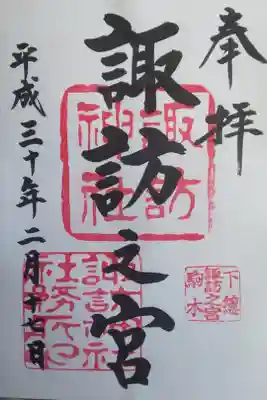 奉拝
諏訪之宮
諏訪
神社
下總
諏訪之宮
駒木
諏訪神社
社務所印
平成三十年二月十七日